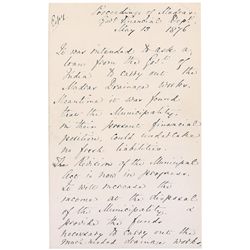 Proceedings of Madras
Govt Financial Dept.
May 13 1876
It was intended to ask a
loan from the Govt. of
India to carry out the
Madras Drainage Works.
Meantime it was found
that the Municipality,
in their present financial
position, could undertake
no fresh liabilities.
The Revision of the Municipal
Act is now in progress.
It will increase the
income at the disposal
of the Municipality, &
provide the funds
necessary to carry out the
much needed drainage works